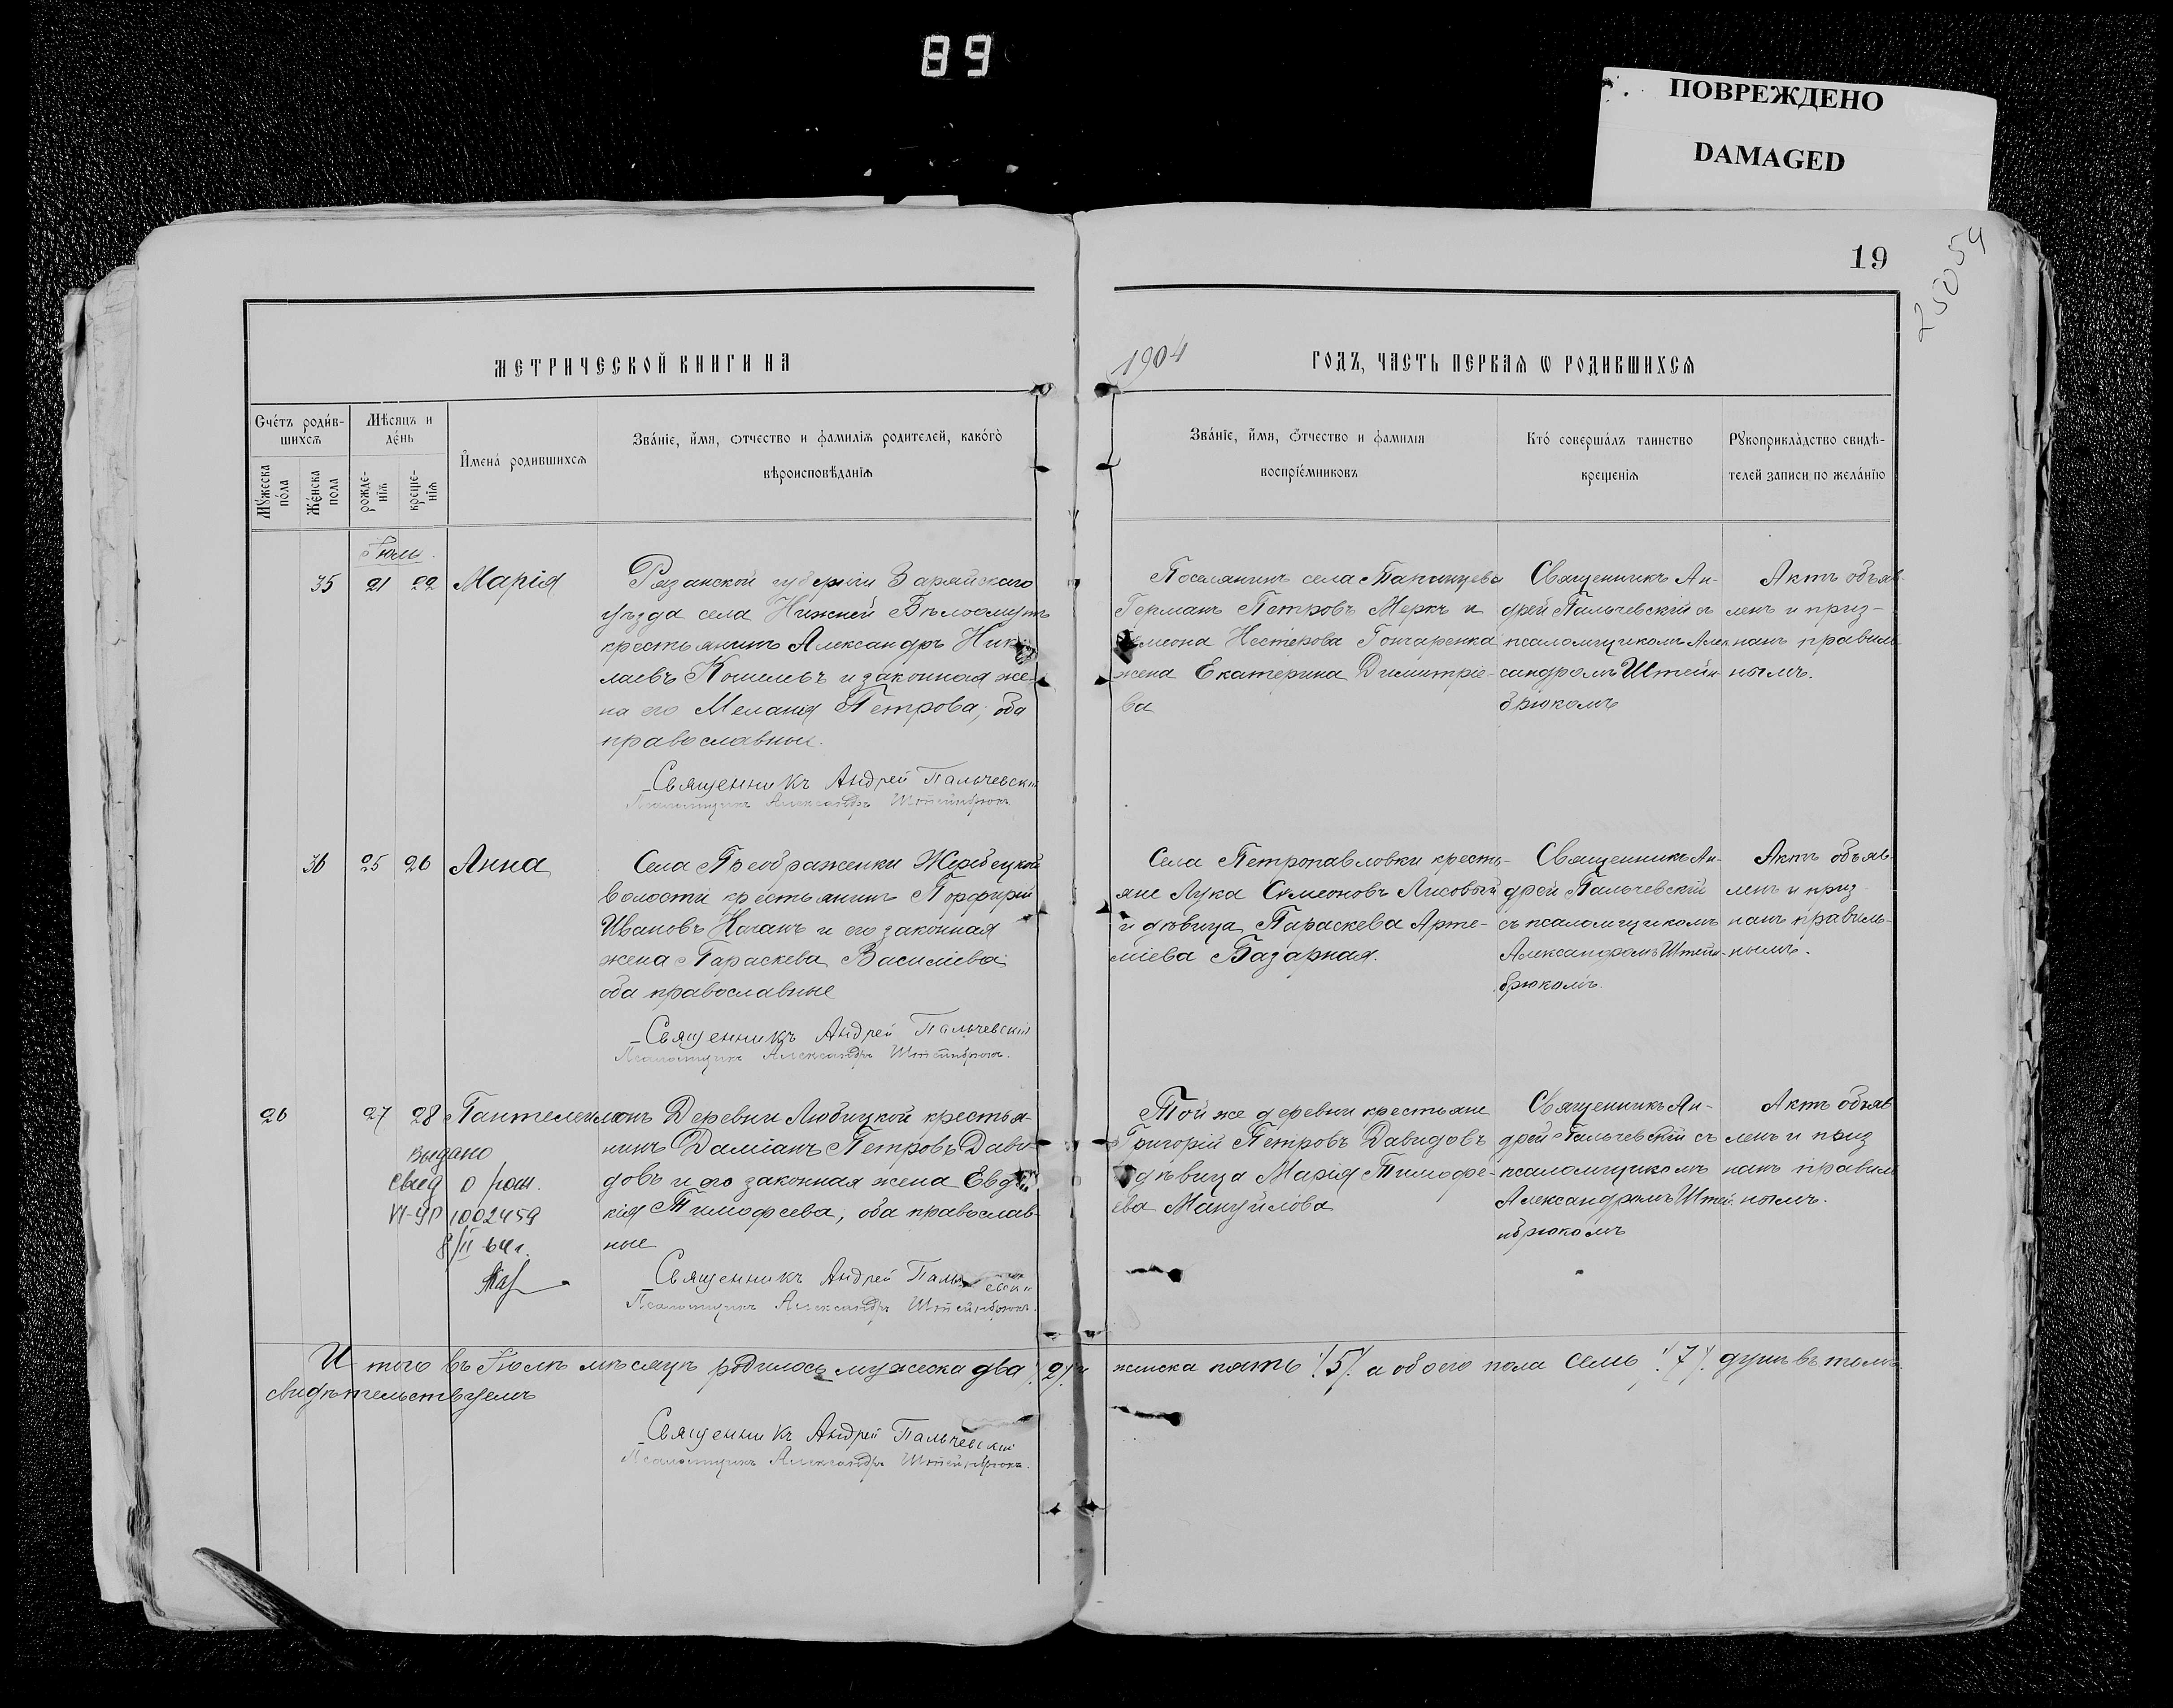 89
ПОВРЕЖДЕНО
DAMAGED
19
25054
МЕТРИЧЕСКОЙ КНИГИ НА
1904
ГОДЪ, ЧАСТЬ ПЕРВАЯ Ѡ РОДИВШИХСЯ
Счетъ родив-
шихся
Мѣсяцъ и
день
Имена родившихся
Званіе, имя, отчество и фамилія родителей, какого
вѣроисповѣданія
Мужеска
пола
Женска
пола
рожде-
нія
креще-
нія
Званіе, имя, отчество и фамилія
воспріемниковъ
Кто совершалъ таинство
крещенія
Рукоприкладство свидѣ-
телей записи по желанію
Іюль.
35 21 22 Марія
Рязанской губерніи Зарайскаго
уѣзда села Нижней Бѣлоомутъ
крестьянинъ Александръ Нико
лаевъ Кошелевъ и законная же-
на его Меланія Петрова; оба
православные.
Священникъ Андрей Пальчевскій
Псаломщикъ Александръ Штейнбрюкъ
Поселянинъ села
Германъ Петровъ Меркъ и
Симеона Нестерова Гончаренка
жена Екатерина Димитріе-
ва
Священникъ Ан-
дрей Пальчевскій съ
псаломщикомъ Алек
сандромъ Штейн-
брюкомъ
Актъ объяв-
ленъ и приз-
нанъ правиль
нымъ.
36 25 26 Анна
Села Преображенки Жеребецкой
волости крестьянинъ Порфирій
Ивановъ Коганъ и его законная
жена Параскева Василіева;
оба православные
Священникъ Андрей Пальчевскій
Псаломщикъ Александръ Штейнбрюкъ.
Села Петропавловки кресть-
яне Лука Симеоновъ Лисовый
и дѣвица Параскева Арте-
міева Базарная.
Священникъ Ан-
дрей Пальчевскій
съ псаломщикомъ
Александромъ Штейн-
брюкомъ.
Актъ объяв-
ленъ и приз-
нанъ правиль-
нымъ.
26 27 28 Пантелеимонъ
Деревни Любицкой крестья-
нинъ Даміанъ Петровъ Дави-
довъ и его законная жена Евдо
кія Тимофеева, оба православ-
ные
Священникъ Андрей Пальчевскій
Псаломщикъ Александръ Штейнбрюкъ.
выдано
свид о рожд.
VI-УР 1002459
8/II 64г.
Той же деревни крестьяне
Григорій Петровъ Давидовъ
и дѣвица Марія Тимофе-
ева Мануйлова
Священникъ Ан-
дрей Пальчевскій съ
псаломщикомъ
Александромъ Штей-
нбрюкомъ
Актъ объяв
ленъ и приз
нанъ правиль
нымъ.
И того въ Іюлѣ мѣсяцѣ родилось мужеска два /2/ и женска пять /5/ а обоего пола семь /7/ душъ въ томъ
свидѣтельствуемъ
Священникъ Андрей Пальчевскій
Псаломщикъ Александръ Штейнбрюкъ.